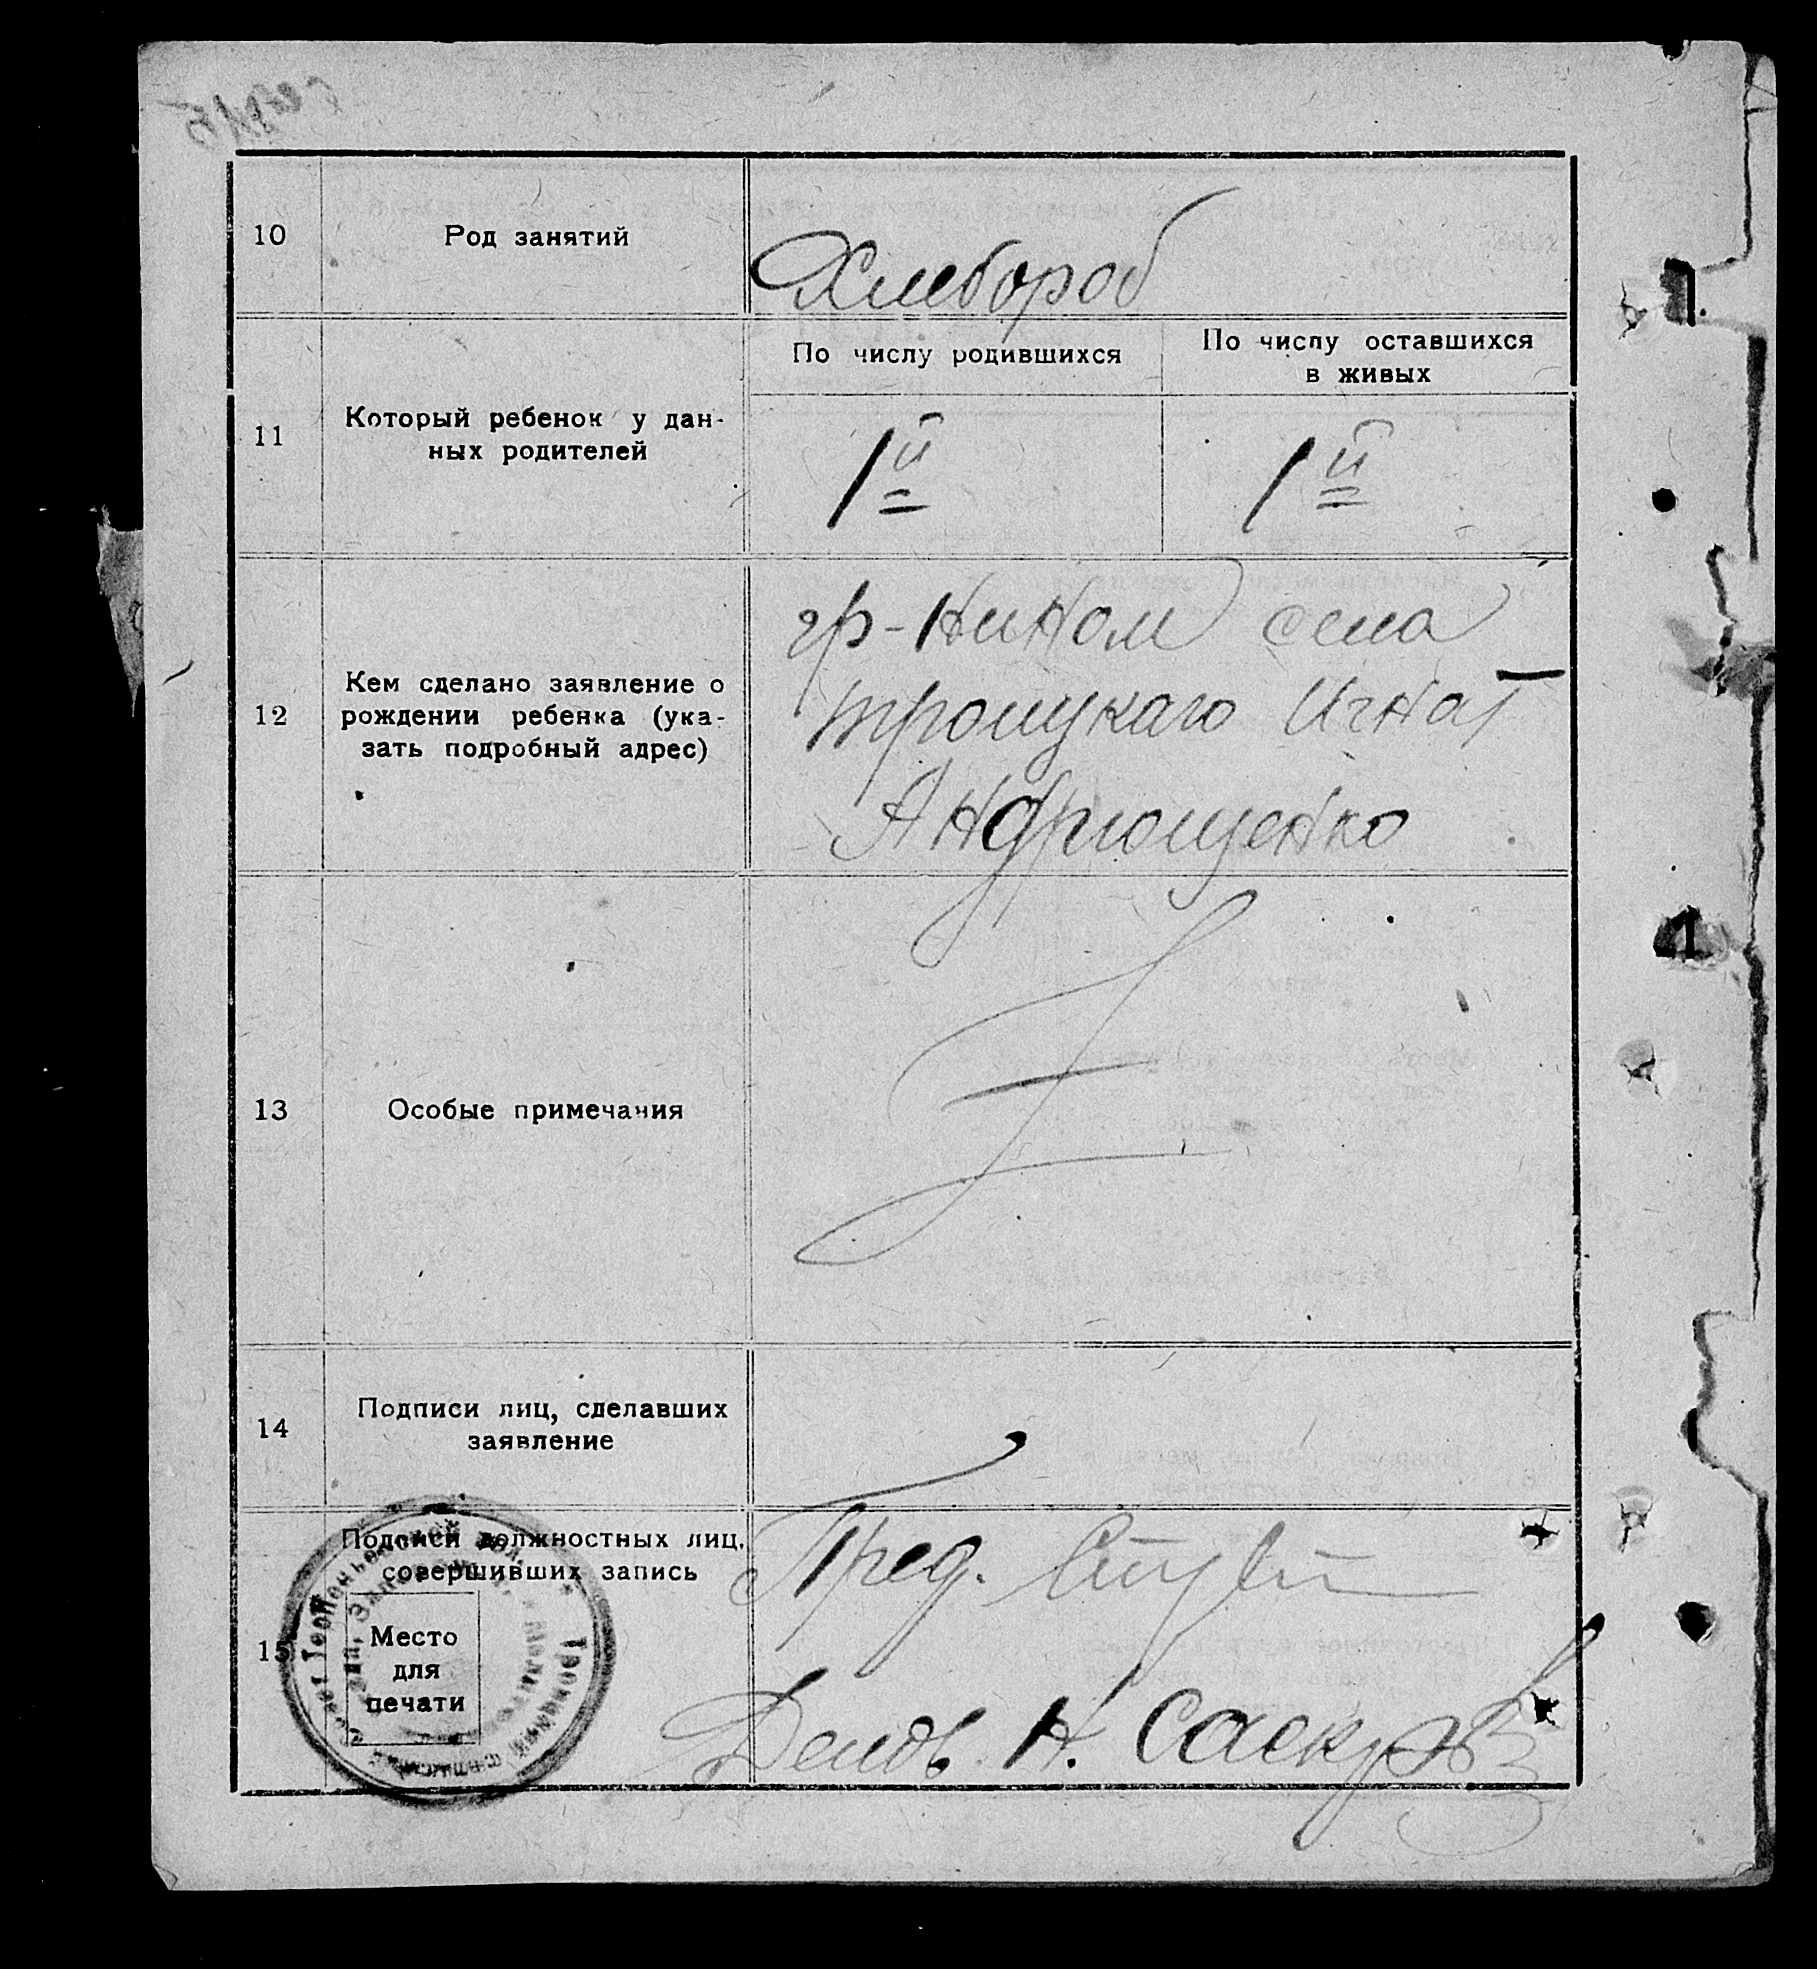 10
Род занятий
Хлебороб
11
Который ребенок у дан-
ных родителей
По числу родившихся
По числу оставшихся
в живых
1й
1й
12
Кем сделано заявление о
рождении ребенка (ука-
зать подробный адрес)
гр-нином села
троицкаго Игнат
Андрющенко
13
Особые примечания
14
Подписи лиц, сделавших
заявление
15
Подписи должностных лиц,
совершивших запись
Место
для
печати
Пред.
Делов. Н.